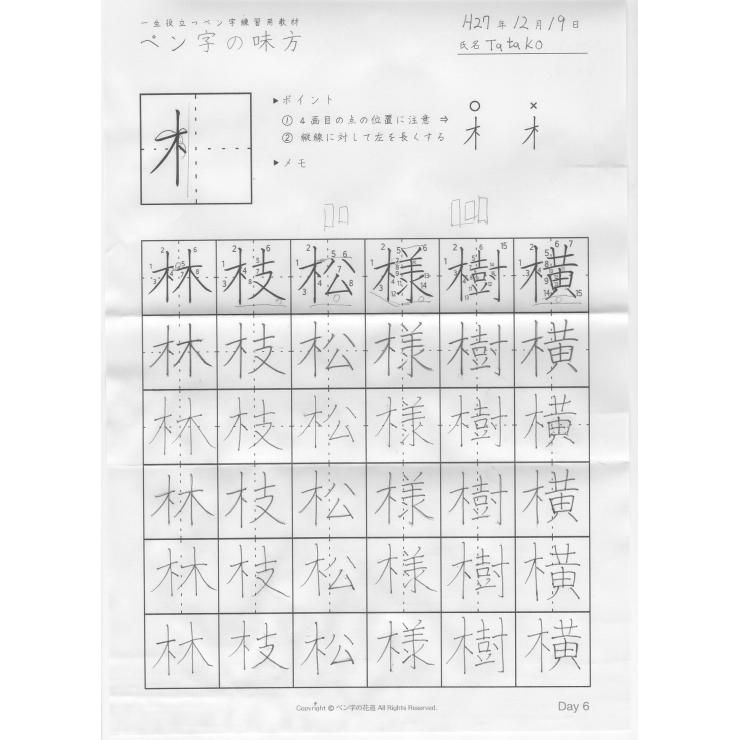 一生役立つペン字練習用教材
ペン字の味方
H27年12月19日
氏名 Tatako
▶ポイント
① 4画目の点の位置に注意 ⇒
② 縦線に対して左を長くする
○ ×
木 木
▶メモ
木
林 枝 松 様 樹 横
林 枝 松 様 樹 横
林 枝 松 様 樹 横
林 枝 松 様 樹 横
林 枝 松 様 樹 横
林 枝 松 様 樹 横
Copyright © ペン字の花道 All Rights Reserved.
Day 6